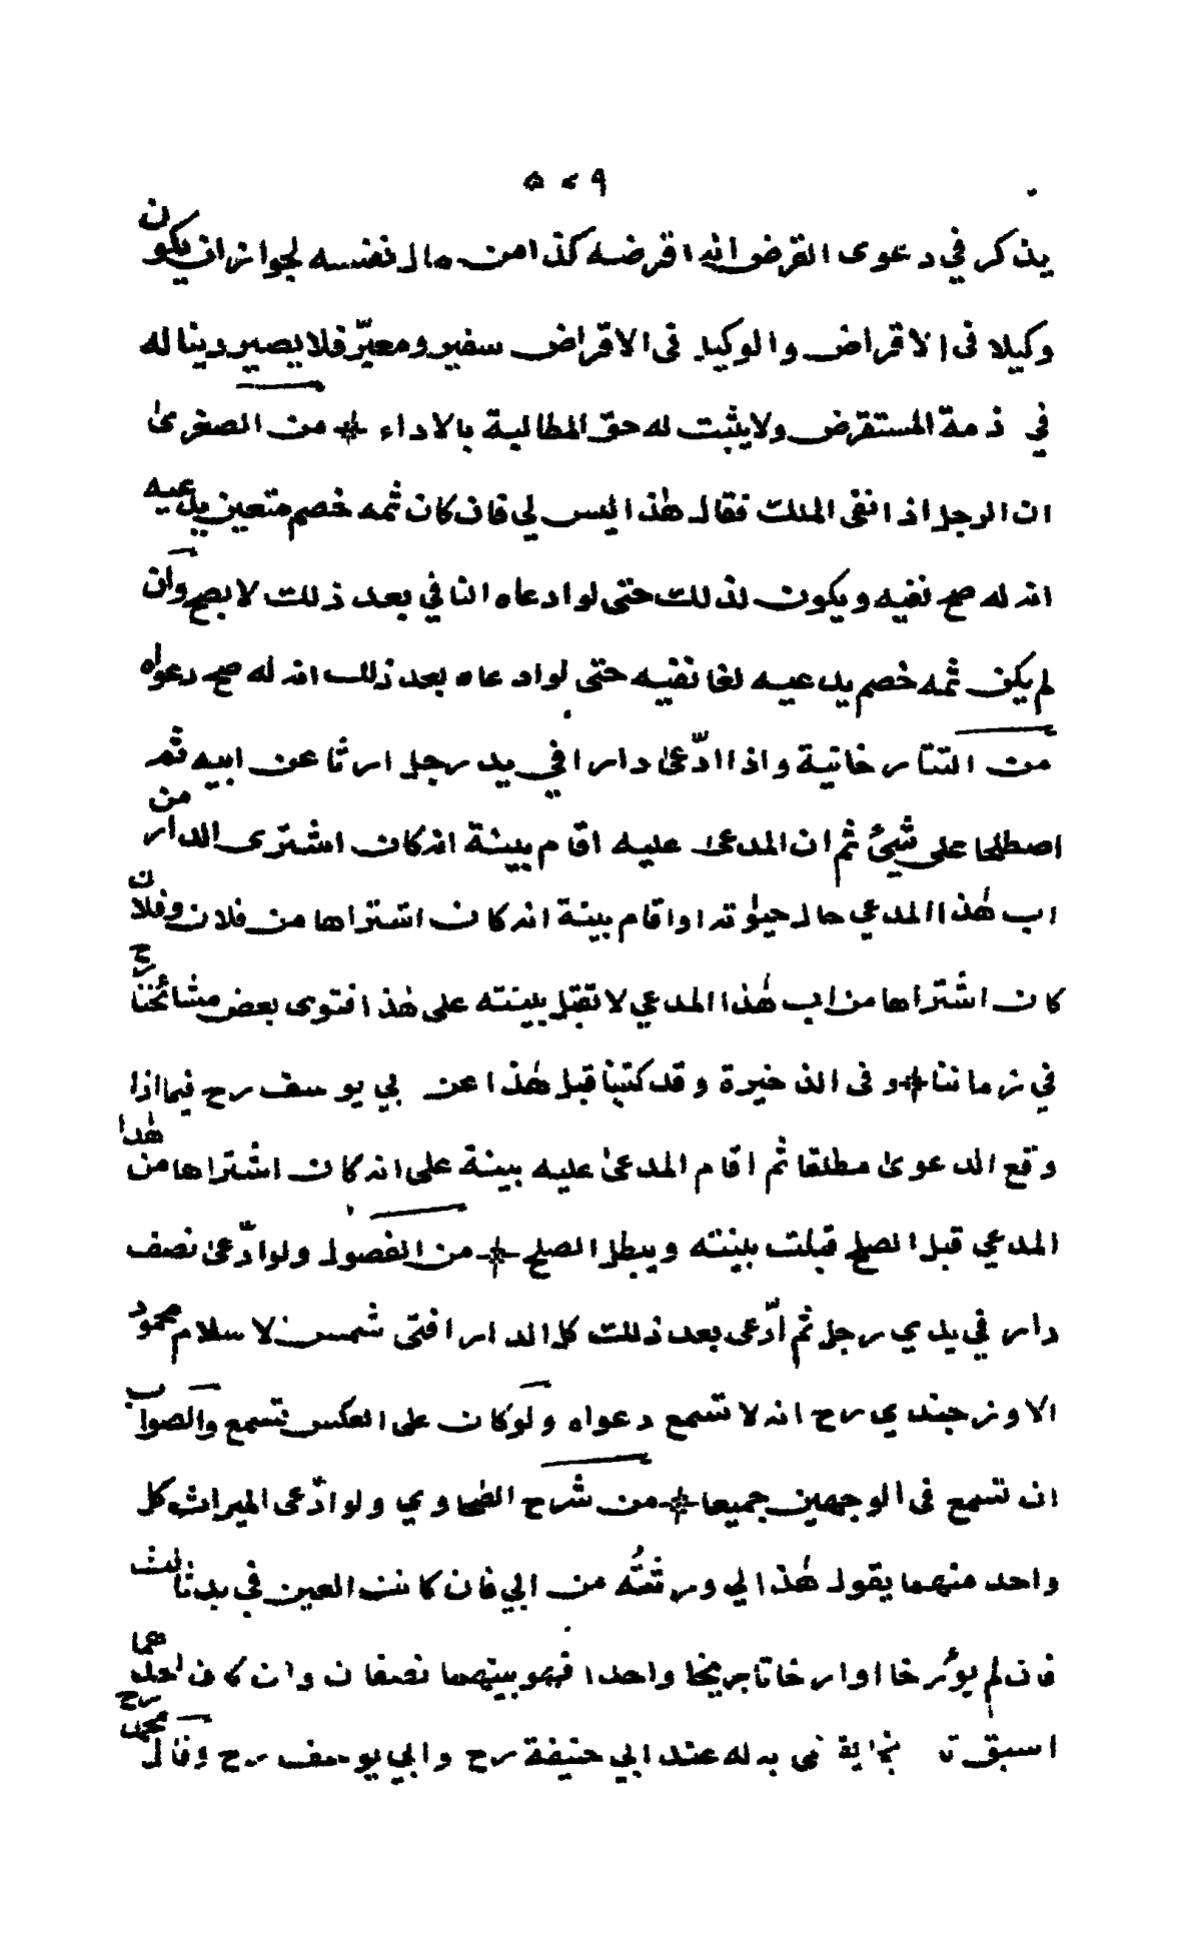 ٥٤٩
يذكر في دعوى القرض انه اقرضه كذا من مال نفسه لجواز ان يكون
وكيلا فى الاقراض والوكيل فى الاقراض سفير ومعبّر فلا يصير دينا له
في ذمة المستقرض ولا يثبت له حق المطالبة بالاداء * من الصغرىٰ
ان الرجل اذا نفى الملك فقال هٰذا ليس لي فان كان ثمه خصم متعين يدعيه
انه له صح نفيه ويكون لذلك حتى لو ادعاه النافي بعد ذلك لا يصح وان
لم يكن ثمه خصم يدعيه لغا نفيه حتى لو ادعاه بعد ذلك انه له صح دعواه
من التتارخانية واذا ادّعىٰ دارا في يد رجل ارثا عن ابيه ثم
اصطلحا على شيئ ثم ان المدعىٰ عليه اقام بينة انه كان اشترى الدار من
اب هٰذا المدعي حال حيٰوته او اقام بينة انه كان اشتراها من فلان وفلان
كان اشتراها من اب هٰذا المدعي لا تقبل بينته على هٰذا فتوى بعض مشائخنا رح
في زماننا * وفى الذخيرة وقد كتبنا قبل هٰذا عن بي يوسف رح فيما اذا
وقع الدعوىٰ مطلقا ثم اقام المدعىٰ عليه بينة على انه كان اشتراها من هٰذا
المدعي قبل الصلح قبلت بينته ويبطل الصلح * من الفصول ولو ادّعىٰ نصف
دار في يدي رجل ثم ادّعى بعد ذلك كل الدار افتى شمس الاسلام محمود
الاوزجندي رح انه لا تسمع دعواه ولو كان على العكس تسمع والصواب
ان تسمع فى الوجهين جميعا * من شرح الطحاوي ولو ادّعى الميراث كل
واحد منهما يقول هٰذا لي ورثتُه من ابي فان كانت العين في يد ثالث
فان لم يؤرخا او ارخا تاريخا واحدا فهو بينهما نصفان وان كان احدهما
اسبق تا يخا يقضى به له عند ابي حنيفة رح وابي يوسف رح وقال محمد رح